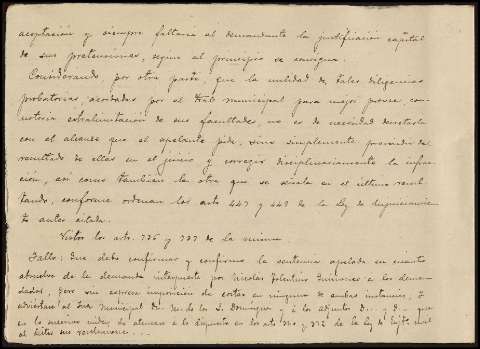 aceptación y siempre faltaría al demandante la justificación capital
de sus pretensiones, según al principio se consigna.
Considerando, por otra parte, que la nulidad de tales diligencias
probatorias, acordadas por el Tral municipal para mejor proveer, con
notoria extralimitación de sus facultades, no es de necesidad decretarla
con el alcance que el apelante pide, sino simplemente prescindir del
resultado de ellas en el juicio y corregir disciplinariamente la infrac-
ción, así como también la otra que se señala en el último resul-
tando, conforme ordenan los arts 447 y 449 de la Ley de Enjuiciamien-
to antes citada.
Vistos los arts. 736 y 737 de la misma.
Fallo: Que debo confirmar y confirmo la sentencia apelada en cuanto
absuelve de la demanda interpuesta por Nicolas Tolentino a los deman-
dados, pero sin expresa imposición de costas en ninguna de ambas instancias, y
adviértase al Juez Municipal D. de los S. Dominguez y a los adjuntos D... y D... que
en lo sucesivo cuiden de atenerse a lo dispuesto en los arts y 372 de la ley de
al dictar sus sentencias...